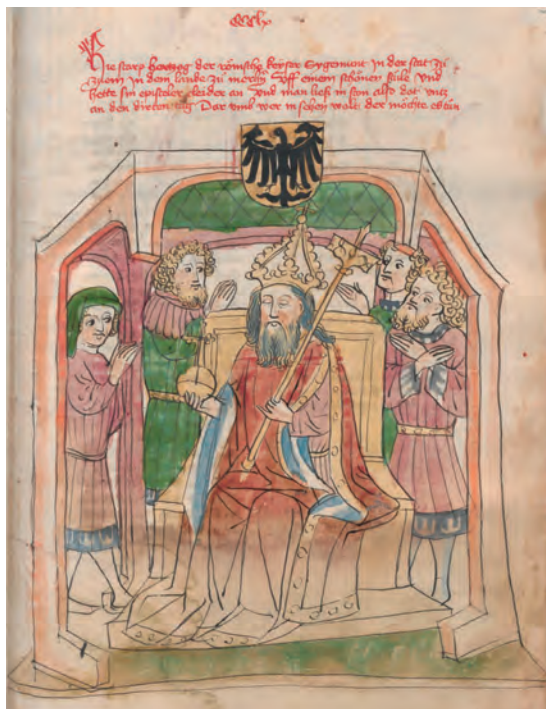 Hie starp hertzog der römische keyser Sygemunt jn der stat zu
znem in dem lande zu merhn Off einem schönen stule Vnd
hette sin epistoler cleider an Vnd man ließ in ston also dot vntz
an den dirten tag Dar vmb wer in sehen wolt der möchte es tůn